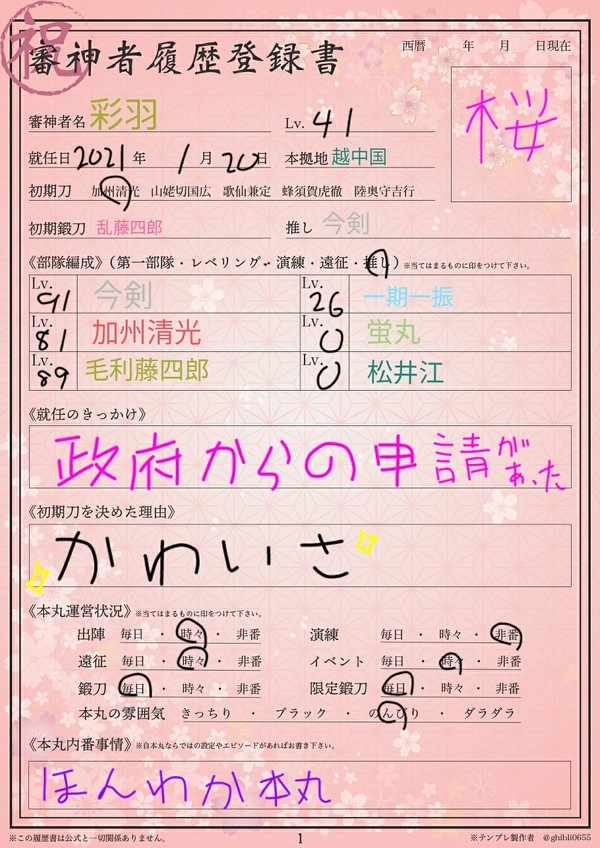 祝
審神者履歴登録書
西暦 年 月 日現在
桜
審神者名 彩羽 Lv. 41
就任日 2021年 1月20日 本拠地 越中国
初期刀 加州清光 山姥切国広 歌仙兼定 蜂須賀虎徹 陸奥守吉行
初期鍛刀 乱藤四郎 推し 今剣
《部隊編成》(第一部隊・レベリング・演練・遠征・推し)※当てはまるものに印をつけて下さい。
Lv. 91 今剣 Lv. 26 一期一振
Lv. 81 加州清光 Lv. 0 蛍丸
Lv. 89 毛利藤四郎 Lv. 0 松井江
《就任のきっかけ》
政府からの申請があった
《初期刀を決めた理由》
かわいさ
《本丸運営状況》※当てはまるものに印をつけて下さい。
出陣 毎日 ・ 時々 ・ 非番 演練 毎日 ・ 時々 ・ 非番
遠征 毎日 ・ 時々 ・ 非番 イベント 毎日 ・ 時々 ・ 非番
鍛刀 毎日 ・ 時々 ・ 非番 限定鍛刀 毎日 ・ 時々 ・ 非番
本丸の雰囲気 きっちり ・ ブラック ・ のんびり ・ ダラダラ
《本丸内番事情》※自本丸ならではの設定やエピソードがあればお書き下さい。
ほんわか本丸
※この履歴書は公式と一切関係ありません。 1 ※テンプレ製作者 @ghibli0655